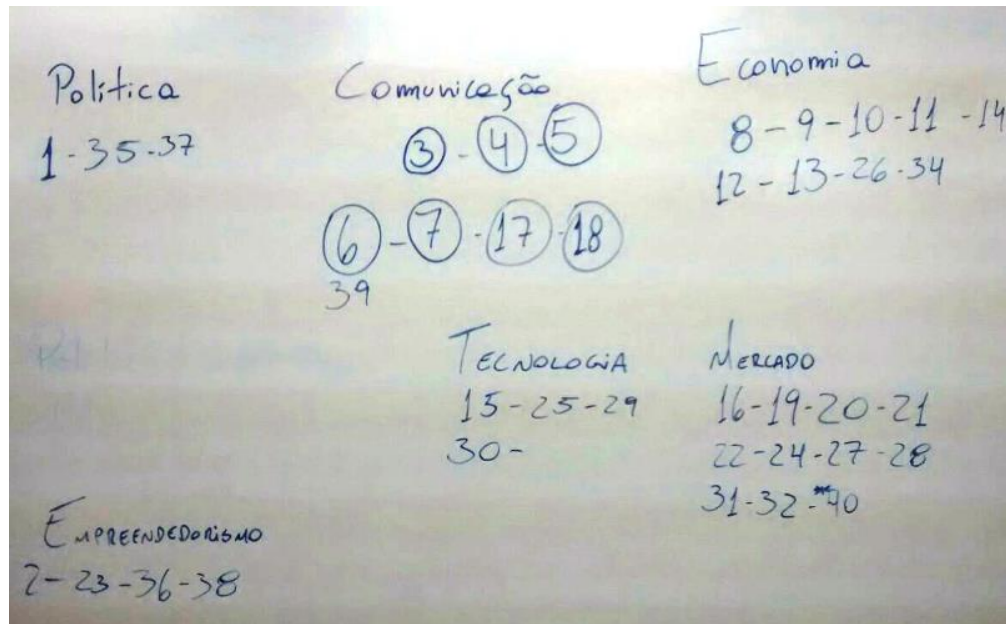 Política
1-35-37
Comunicação
3-4-5
6-7-17-18
39
Economia
8-9-10-11-14
12-13-26-34
TECNOLOGIA
15-25-29
30-
MERCADO
16-19-20-21
22-24-27-28
31-32-40
EMPREENDEDORISMO
2-23-36-38